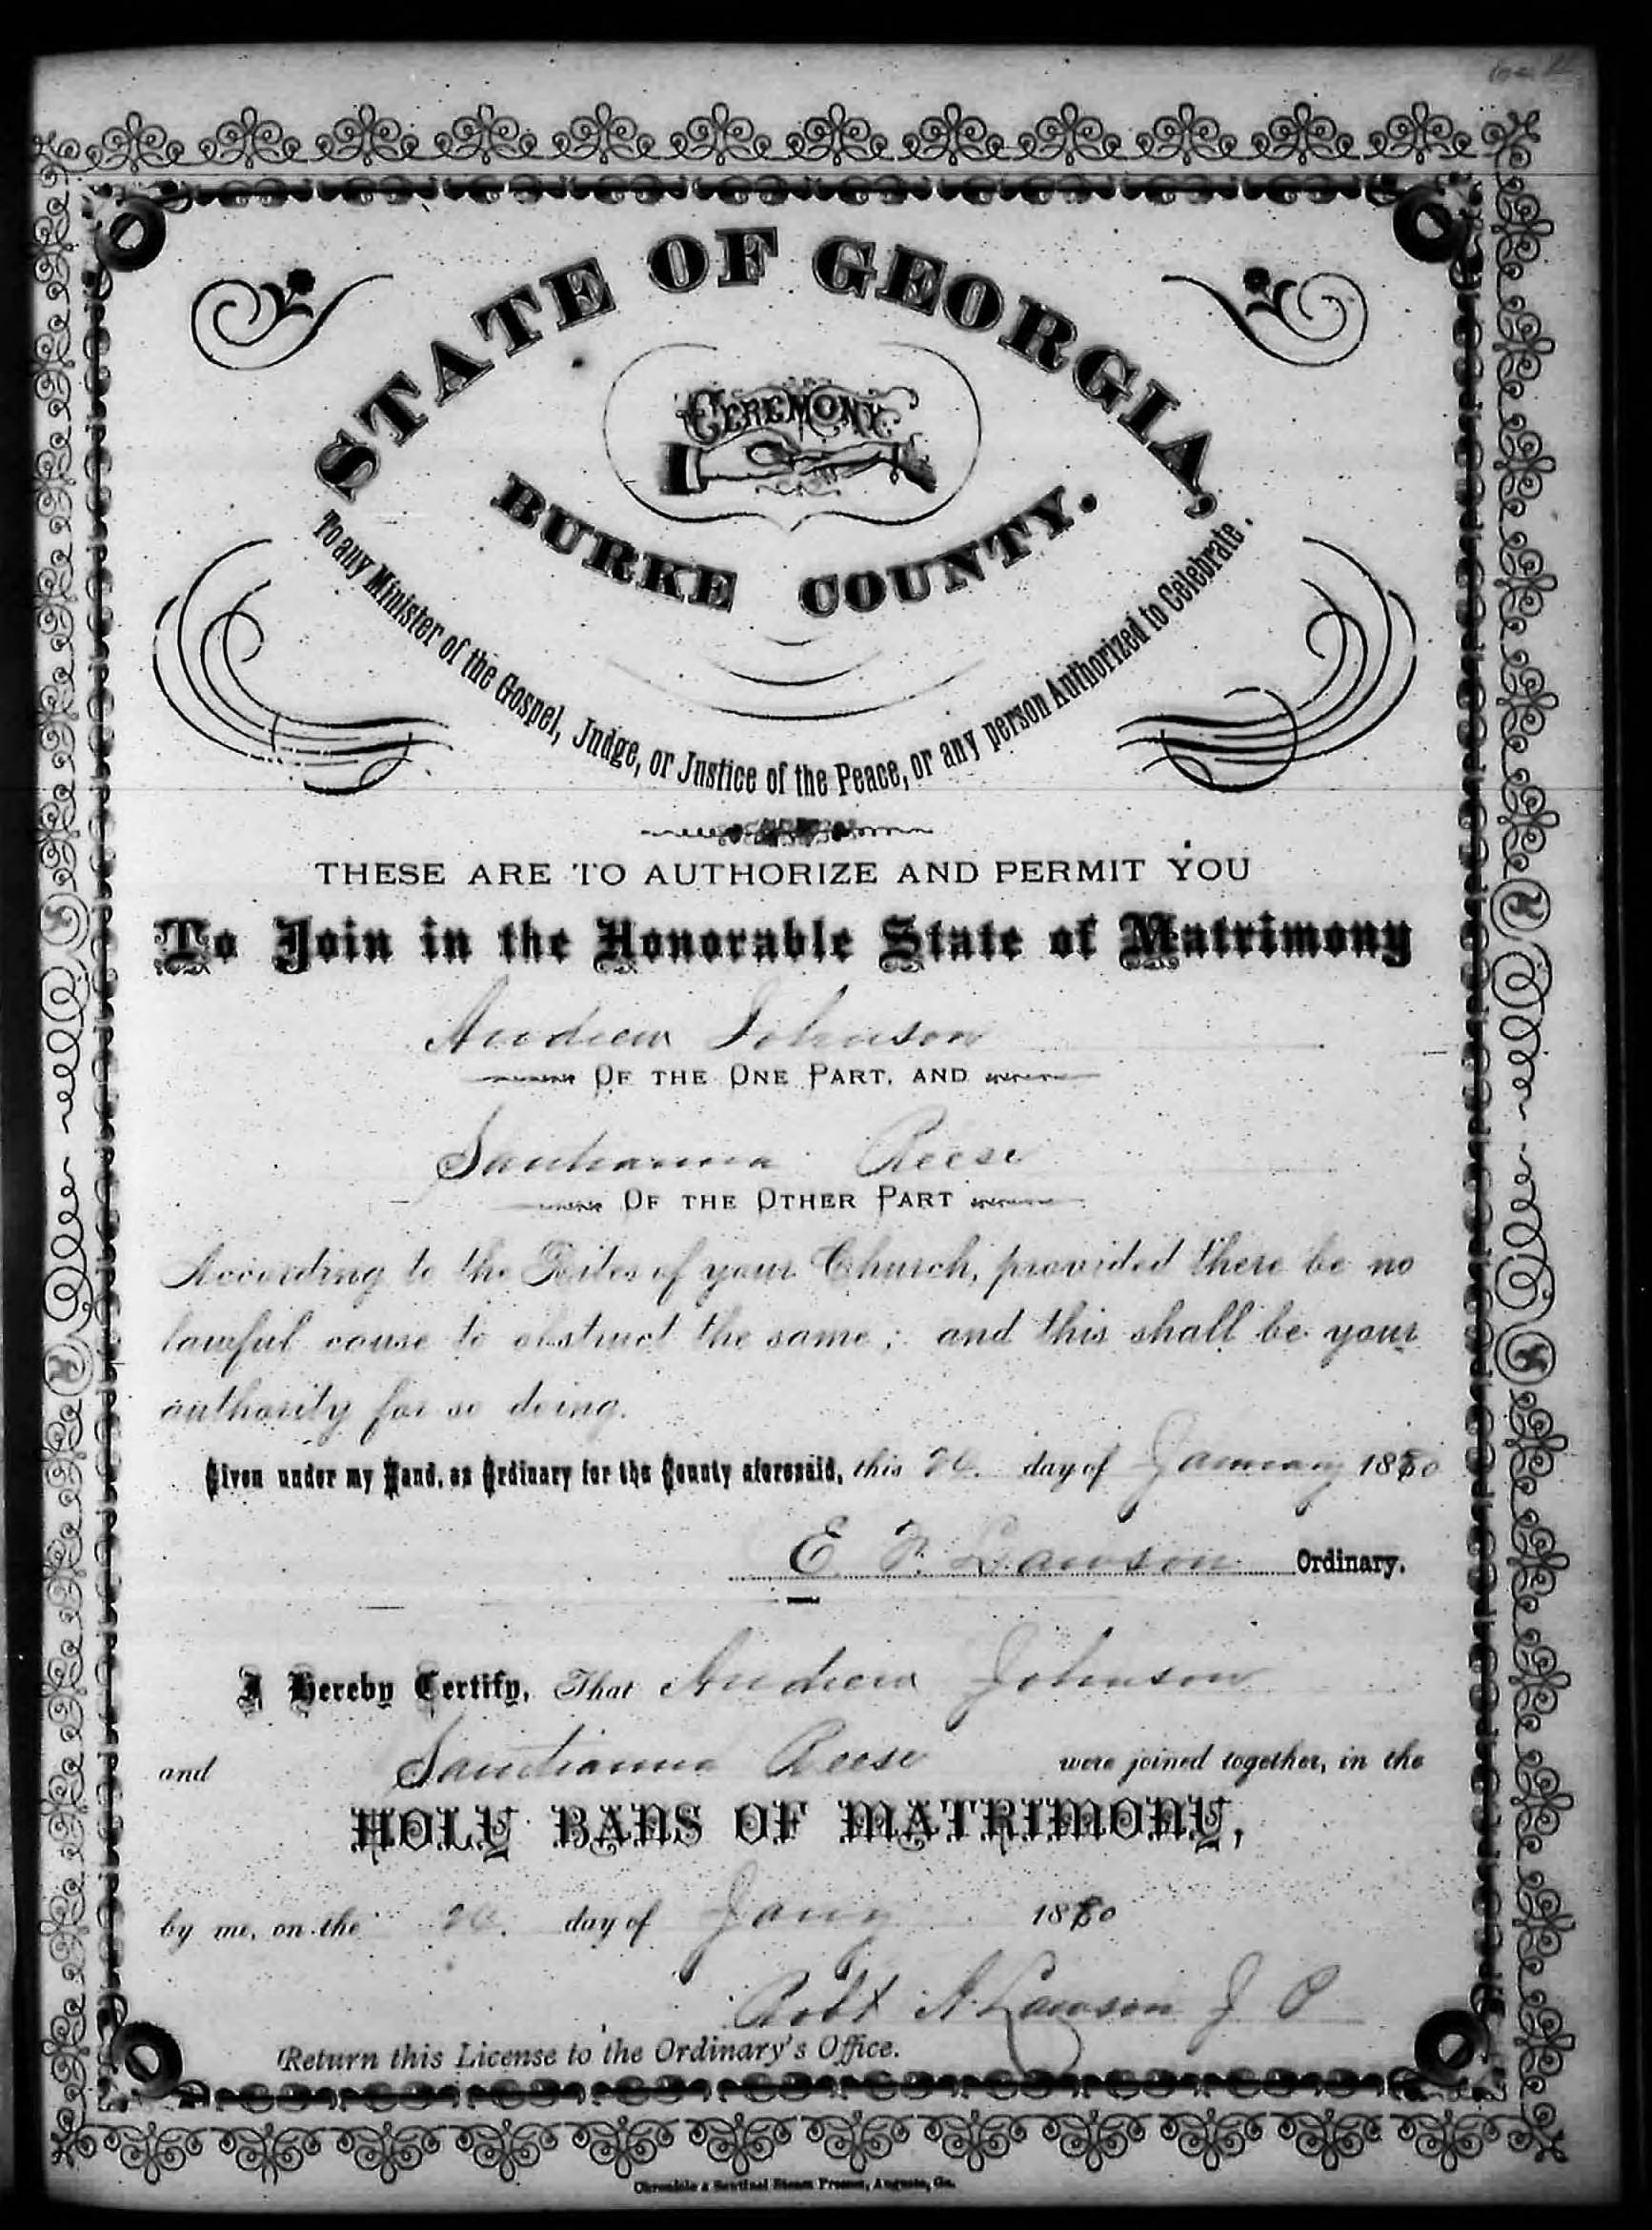 STATE OF GEORGIA,
CEREMONY
BURKE COUNTY.
To any Minister of the Gospel, Judge, or Justice of the Peace, or any person Authorized to Celebrate.
THESE ARE TO AUTHORIZE AND PERMIT YOU
To Join in the Honorable State of Matrimony
Andrew Johnson
OF THE ONE PART, AND
Santianna Reese
OF THE OTHER PART
According to the Rites of your Church, provided there be no
lawful cause to obstruct the same; and this shall be your
authority for so doing.
Given under my Hand, as Ordinary for the County aforesaid, this day of January 1880
E. F. Lawson Ordinary.
I Hereby Certify, That Andrew Johnson
and Santianna Reese were joined together, in the
HOLY BANS OF MATRIMONY,
by me, on the day of Jany 1880
Robt A. Lawson J P
Return this License to the Ordinary's Office.
Chronicle & Sentinel Steam Presses, Augusta, Ga.